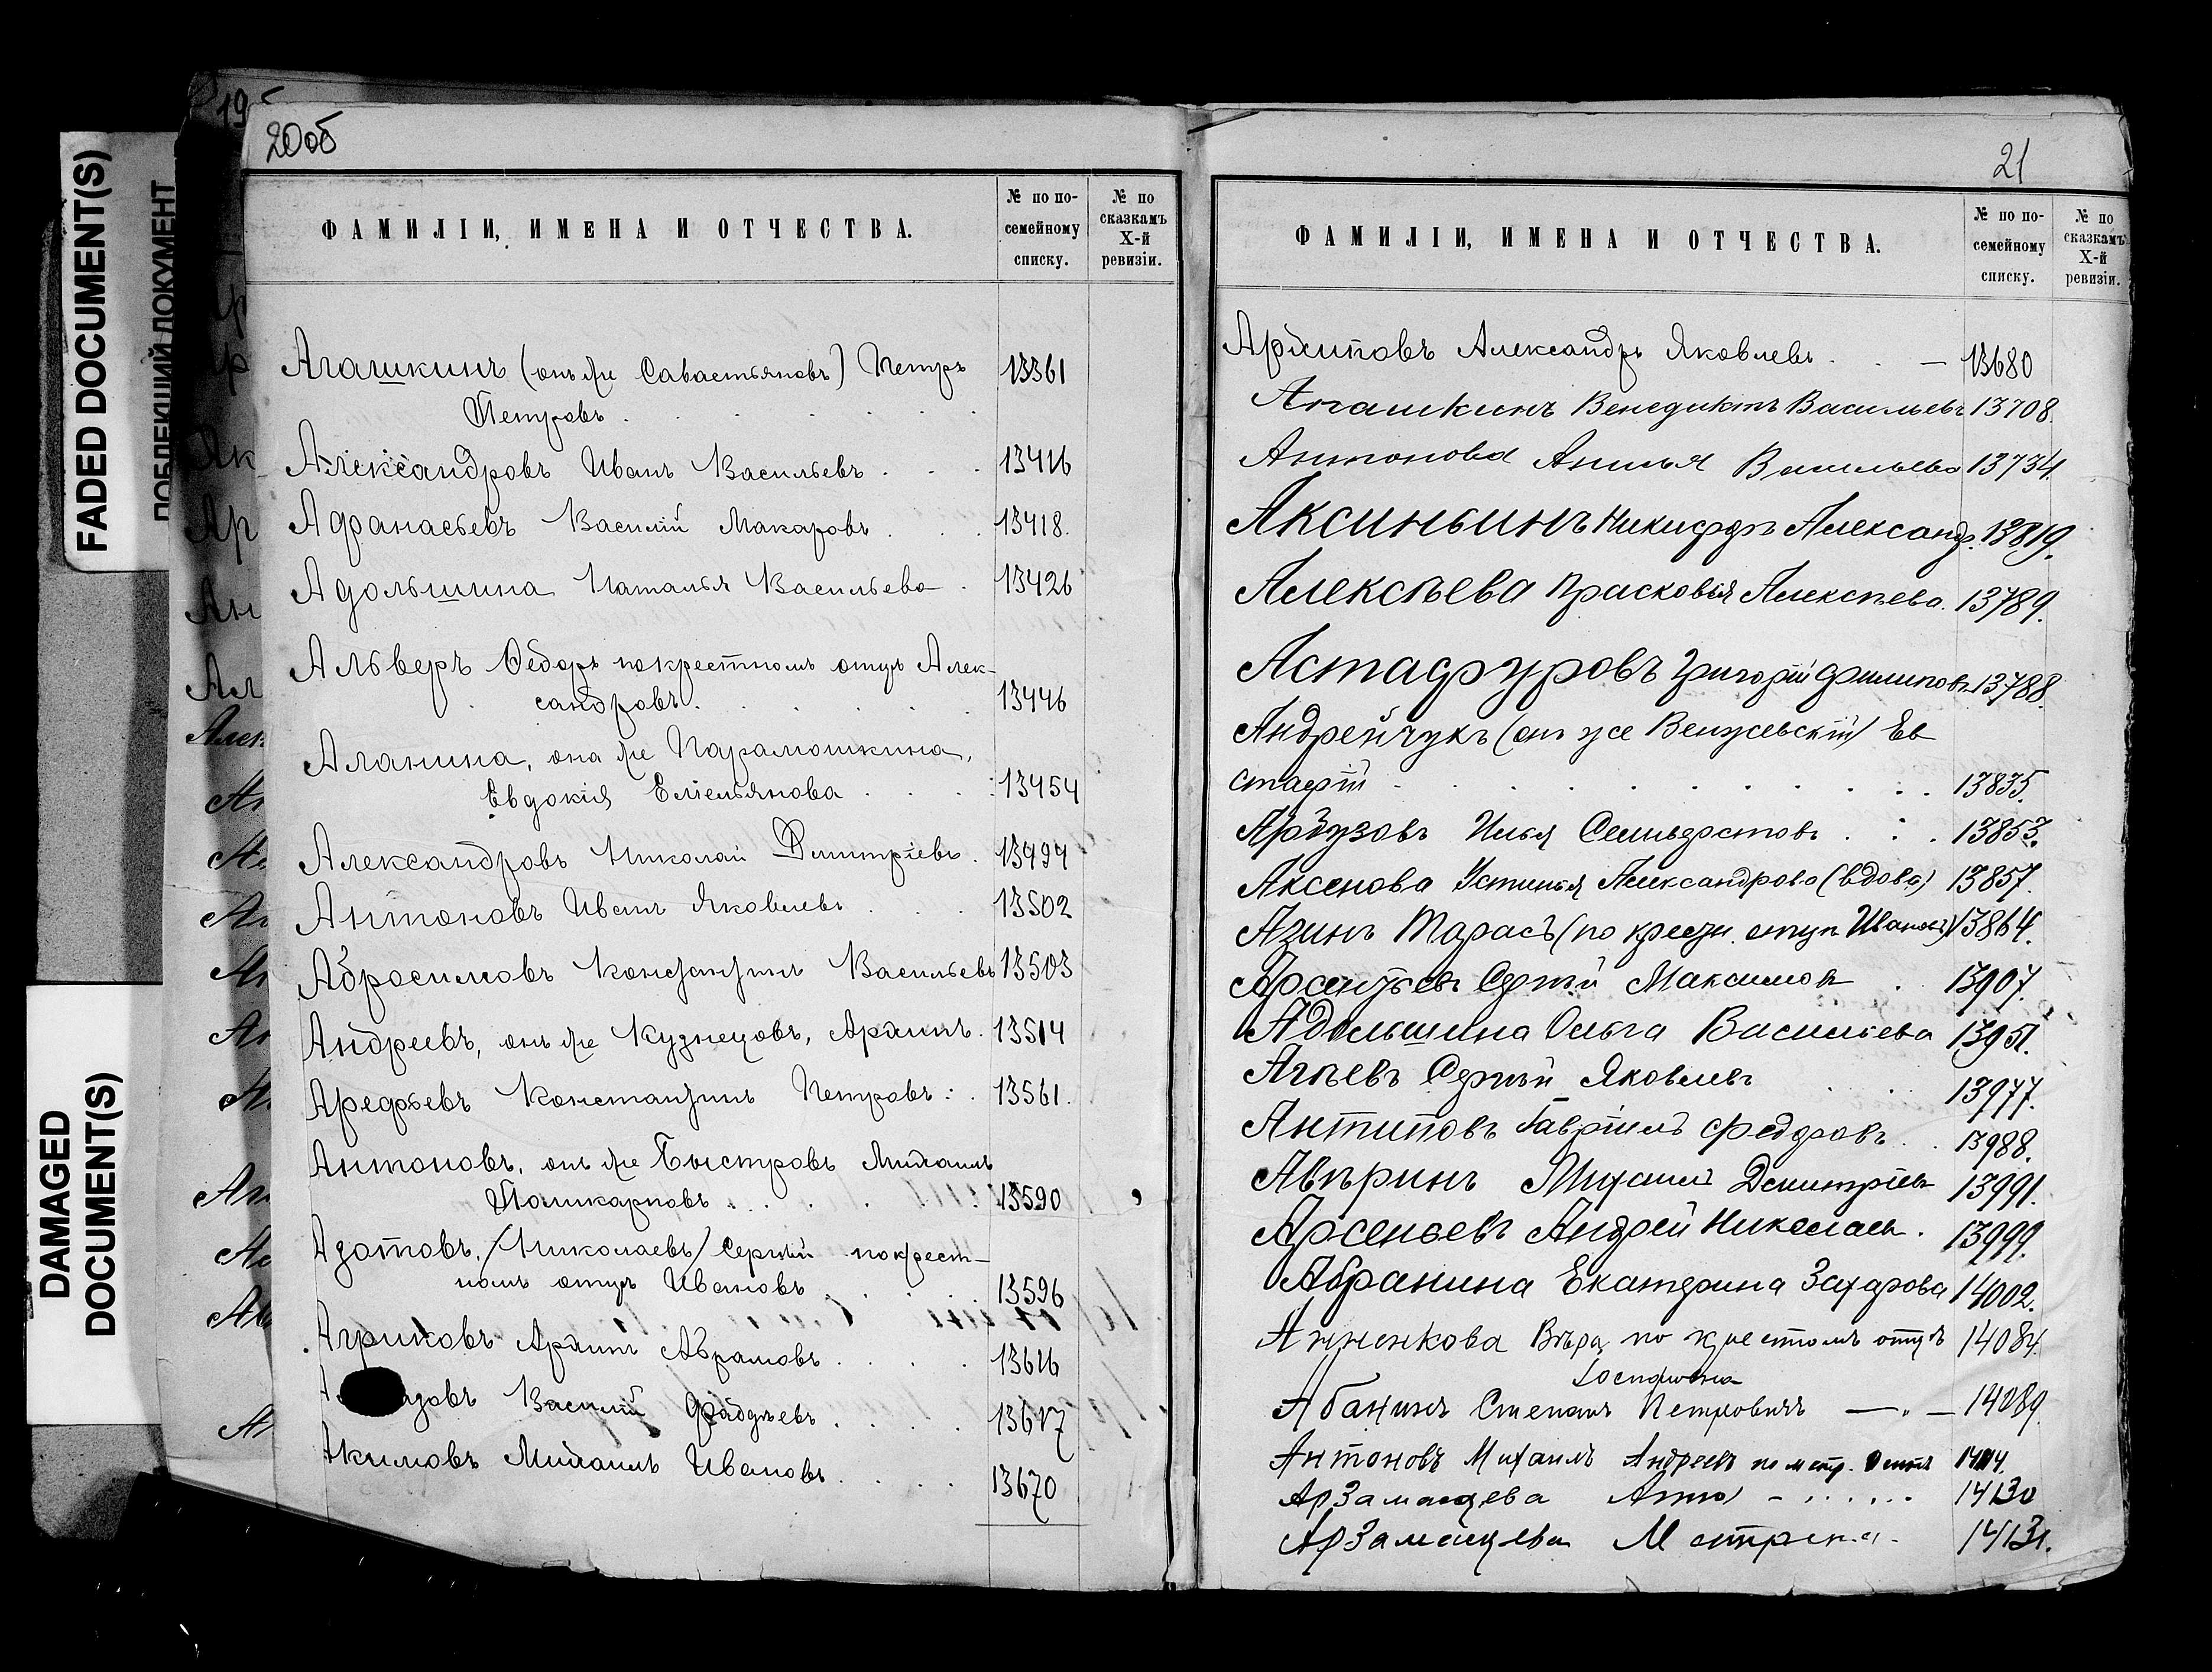 FADED DOCUMENT(S)
ПОБЛЕКШИЙ ДОКУМЕНТ
DAMAGED
DOCUMENT(S)
19
20об
ФАМИЛІИ, ИМЕНА И ОТЧЕСТВА.
№ по по-
семейному
списку.
№ по
сказкамъ
X-й
ревизіи.
Агашкинъ (онъ же Савастьяновъ) Петръ 13361
Петровъ
Александровъ Иванъ Васильевъ 13416
Афанасьевъ Василій Макаровъ 13418.
Адольшина Наталья Васильева 13426
Альверъ Ѳедоръ по крестномъ отцѣ Алек-
сандровъ 13446
Аланина, она же Парамошкина,
Евдокія Емельянова 13454
Александровъ Николай Дмитріевъ 13494
Антоновъ Иванъ Яковлевъ 13502
Абросимовъ Константинъ Васильевъ 13503
Андреевъ, онъ же Кузнецовъ, Архипъ. 13514
Арефьевъ Константинъ Петровъ 13561.
Антоновъ, онъ же Быстровъ Михаилъ
Поликарповъ 13590
Адотовъ, (Николаевъ) Сергѣй по крест-
номъ отцѣ Ивановъ 13596
Агриковъ Архипъ Абрамовъ 13616
Василій 13617
Акимовъ Михаилъ Ивановъ 13670
21
ФАМИЛІИ, ИМЕНА И ОТЧЕСТВА.
№ по по-
семейному
списку.
№ по
сказкамъ
X-й
ревизіи.
Архиповъ Александръ Яковлевъ 13680
Агашкинъ Венедиктъ Васильевъ 13708.
Антонова Васильева 13734.
Аксиньинъ Никифоръ Александр. 13819.
Алексѣева Прасковья Алексѣева. 13789.
Астафуровъ Григорій Филиповъ 13788.
Андрейчукъ (онъ же Венжевскій) Ев
стафій 13835.
Арбузовъ Илья 13853.
Аксенова Устинья Александрова (вдова) 13857.
Азинъ Тарасъ (по крестн. отцѣ Ивановъ) 13864.
Арсентьевъ Сергѣй Максимовъ 13907.
Адольшина Ольга Васильева 13951.
Агѣевъ Сергѣй Яковлевъ 13977.
Антиповъ Гавріилъ Федоровъ 13988.
Авѣринъ Михаилъ Дмитріевъ 13991.
Арсеньевъ Андрей Николаевъ. 13999.
Абранина Екатерина Захарова 14002.
Анненкова Вѣра, по крестномъ отцѣ 14084.
Абанинъ Степанъ Петровичъ 14089.
Антоновъ Михаилъ Андреевъ
Арзамасцева Анна 14130
Арзамасцева 14131.